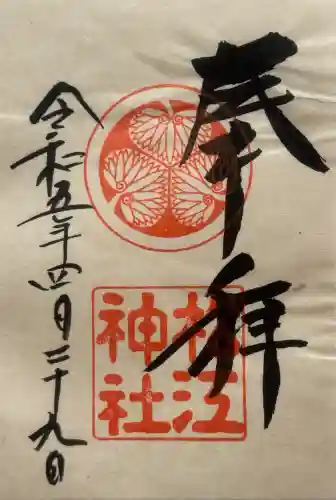 奉拝
松江神社
令和五年四月二十九日